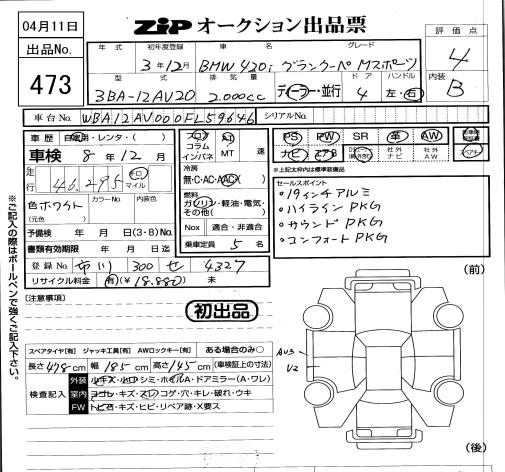 04月11日
ZIP オークション出品票
出品No.
473
評価点
4
内装
B
年式 初年度登録 車名 グレード
3年12月 BMW 420i グランクーペ Mスポーツ
型式 排気量 ドア ハンドル
3BA-12AV20 2.000cc ディーラー・並行 4 左・右
車台No. WBA12AV000FL59646 シリアルNo.
車歴 自家用・レンタ・( )
車検 8年12月
走行 46,295 キロ マイル
色 ホワイト カラーNo. 内装色
(元色)
予備検 年 月 日(3・8)No.
書類有効期限 年 月 日迄
登録No. 市川 300 せ 4327
リサイクル料金 有(¥18.880) 未
フロア コラム インパネ AT MT 速
冷房
無・C・AC・AAC
燃料
ガソリン・軽油・電気・その他( )
Nox 適合・非適合
乗車定員 5 名
PS PW SR 革 AW
ナビ エアB 社外ナビ 社外AW
※上記太枠内は標準装備品
セールスポイント
・19インチアルミ
・ハイラインPKG
・サウンドPKG
・コンフォートPKG
[注意事項]
初出品
スペアタイヤ[有] ジャッキ工具[有] AWロックキー[有] ある場合のみ○
長さ478cm 幅185cm 高さ145cm (車検証上の寸法)
検査記入
外装 小キズ・小凹・シミ・ホイルA・ドアミラー(A・ワレ)
室内 ヨゴレ・キズ・スレ・コゲ・穴・キレ・破れ・ウキ
FW トビ石・キズ・ヒビ・リペア跡・X要ス
(前)
AU3
U2
(後)
※ご記入の際はボールペンで強くご記入下さい。